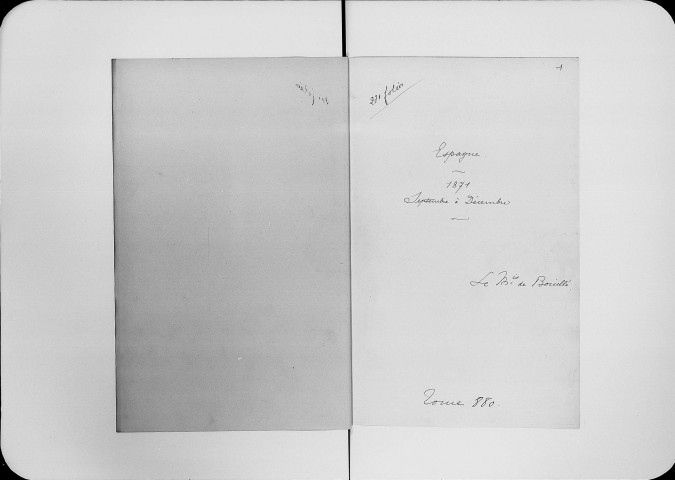 1
271 folios
Espagne
1871
Septembre à Décembre
Le Mis de Bouillé
Tome 880.